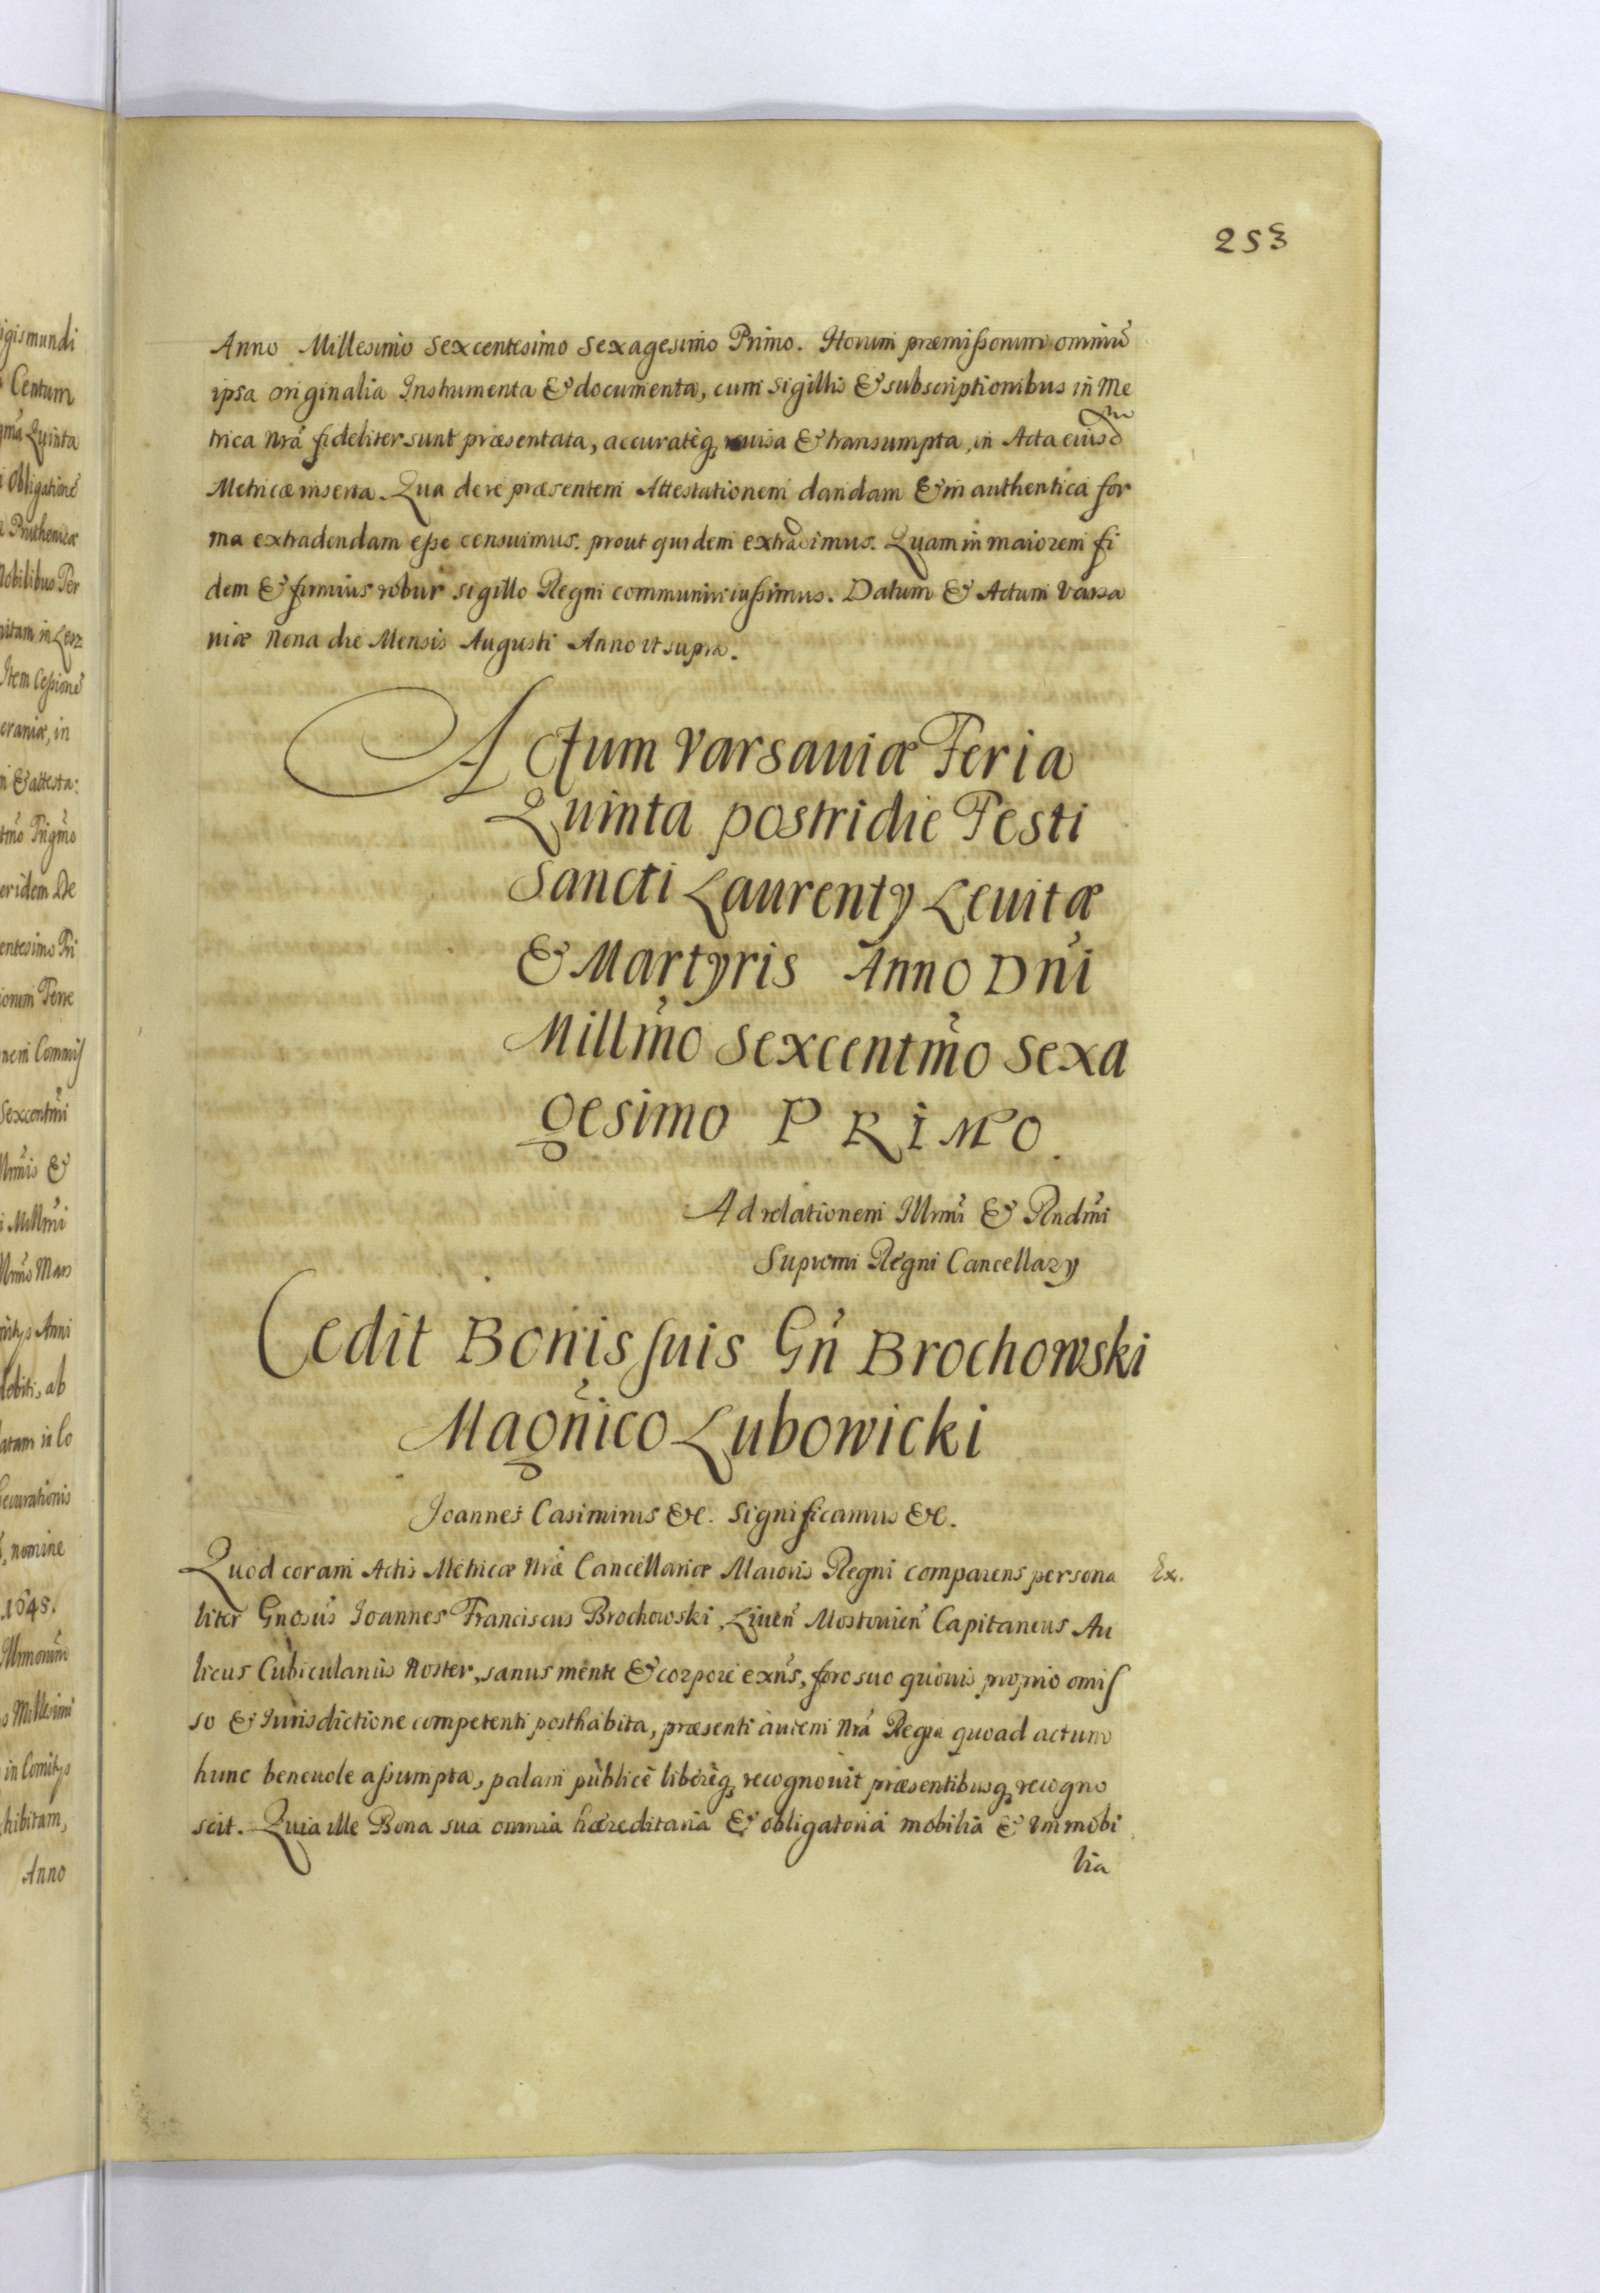 253
Anno Millesimo Sexcentesimo Sexagesimo Primo. Horum præmissorum omniu͂
ipsa originalia Instrumenta & documenta, cum sigillis & subscriptionibus in Me
trica Nr̃a fideliter sunt præsentata, accurateq, reuisa & transumpta, in Acta eiusd
Metricæ inserta. Qua de re præsentem Attestationem dandam & in authentica for
ma extradendam esse censuimus. prout quidem extradimus. Quam in maiorem fi
dem & firmius robur sigillo Regni communiri iussimus. Datum & Actum Varsa
uiæ Nona die Mensis Augusti Anno ut supra.
Actum Varsauiæ Feria
Quinta postridie Festi
Sancti Laurenty Leuitæ
& Martyris Anno Dn̓i
Millm̓o Sexcentm̓o Sexa
gesimo PRIMO.
Ad relationem Illmi̓ & Rndm̓i
Supremi Regni Cancellary
Cedit Bonis suis Gn̓ Brochowski
Magn̓ico Lubowicki
Joannes Casimirus &c. Significamus &c.
Quod coram Actis Metricæ Nr̃æ Cancellariæ Maioris Regni comparens persona
Ex.
liter Gnosus̓ Joannes Franciscus Brochowski, Liuen̓ Mostouien̓ Capitaneus Au
licus Cubicularius Noster, sanus mente & corpore exn̓s, foro suo quouis proprio omis
so & Iurisdictione competenti posthabita, præsenti autem Nr̃a Regia quoad actum
hunc beneuole assumpta, palam publicè liberèq, recognouit præsentibusq, recogno
scit. Quia ille Bona sua omnia hæreditaria & obligatoria mobilia & Immobi
lia
igismundi
Centum
Quinta
Obligatione͂
Pruthenicæ
Nobilibus Per
Item Cessione͂
eraniæ, in
& attesta:
eridem De
entesimo Pri
nem Commis
Sexcentm̓i
Millm̓i
Anni
ab
nomine
1645.
Millesimi
in Comitys
hibitam,
Anno